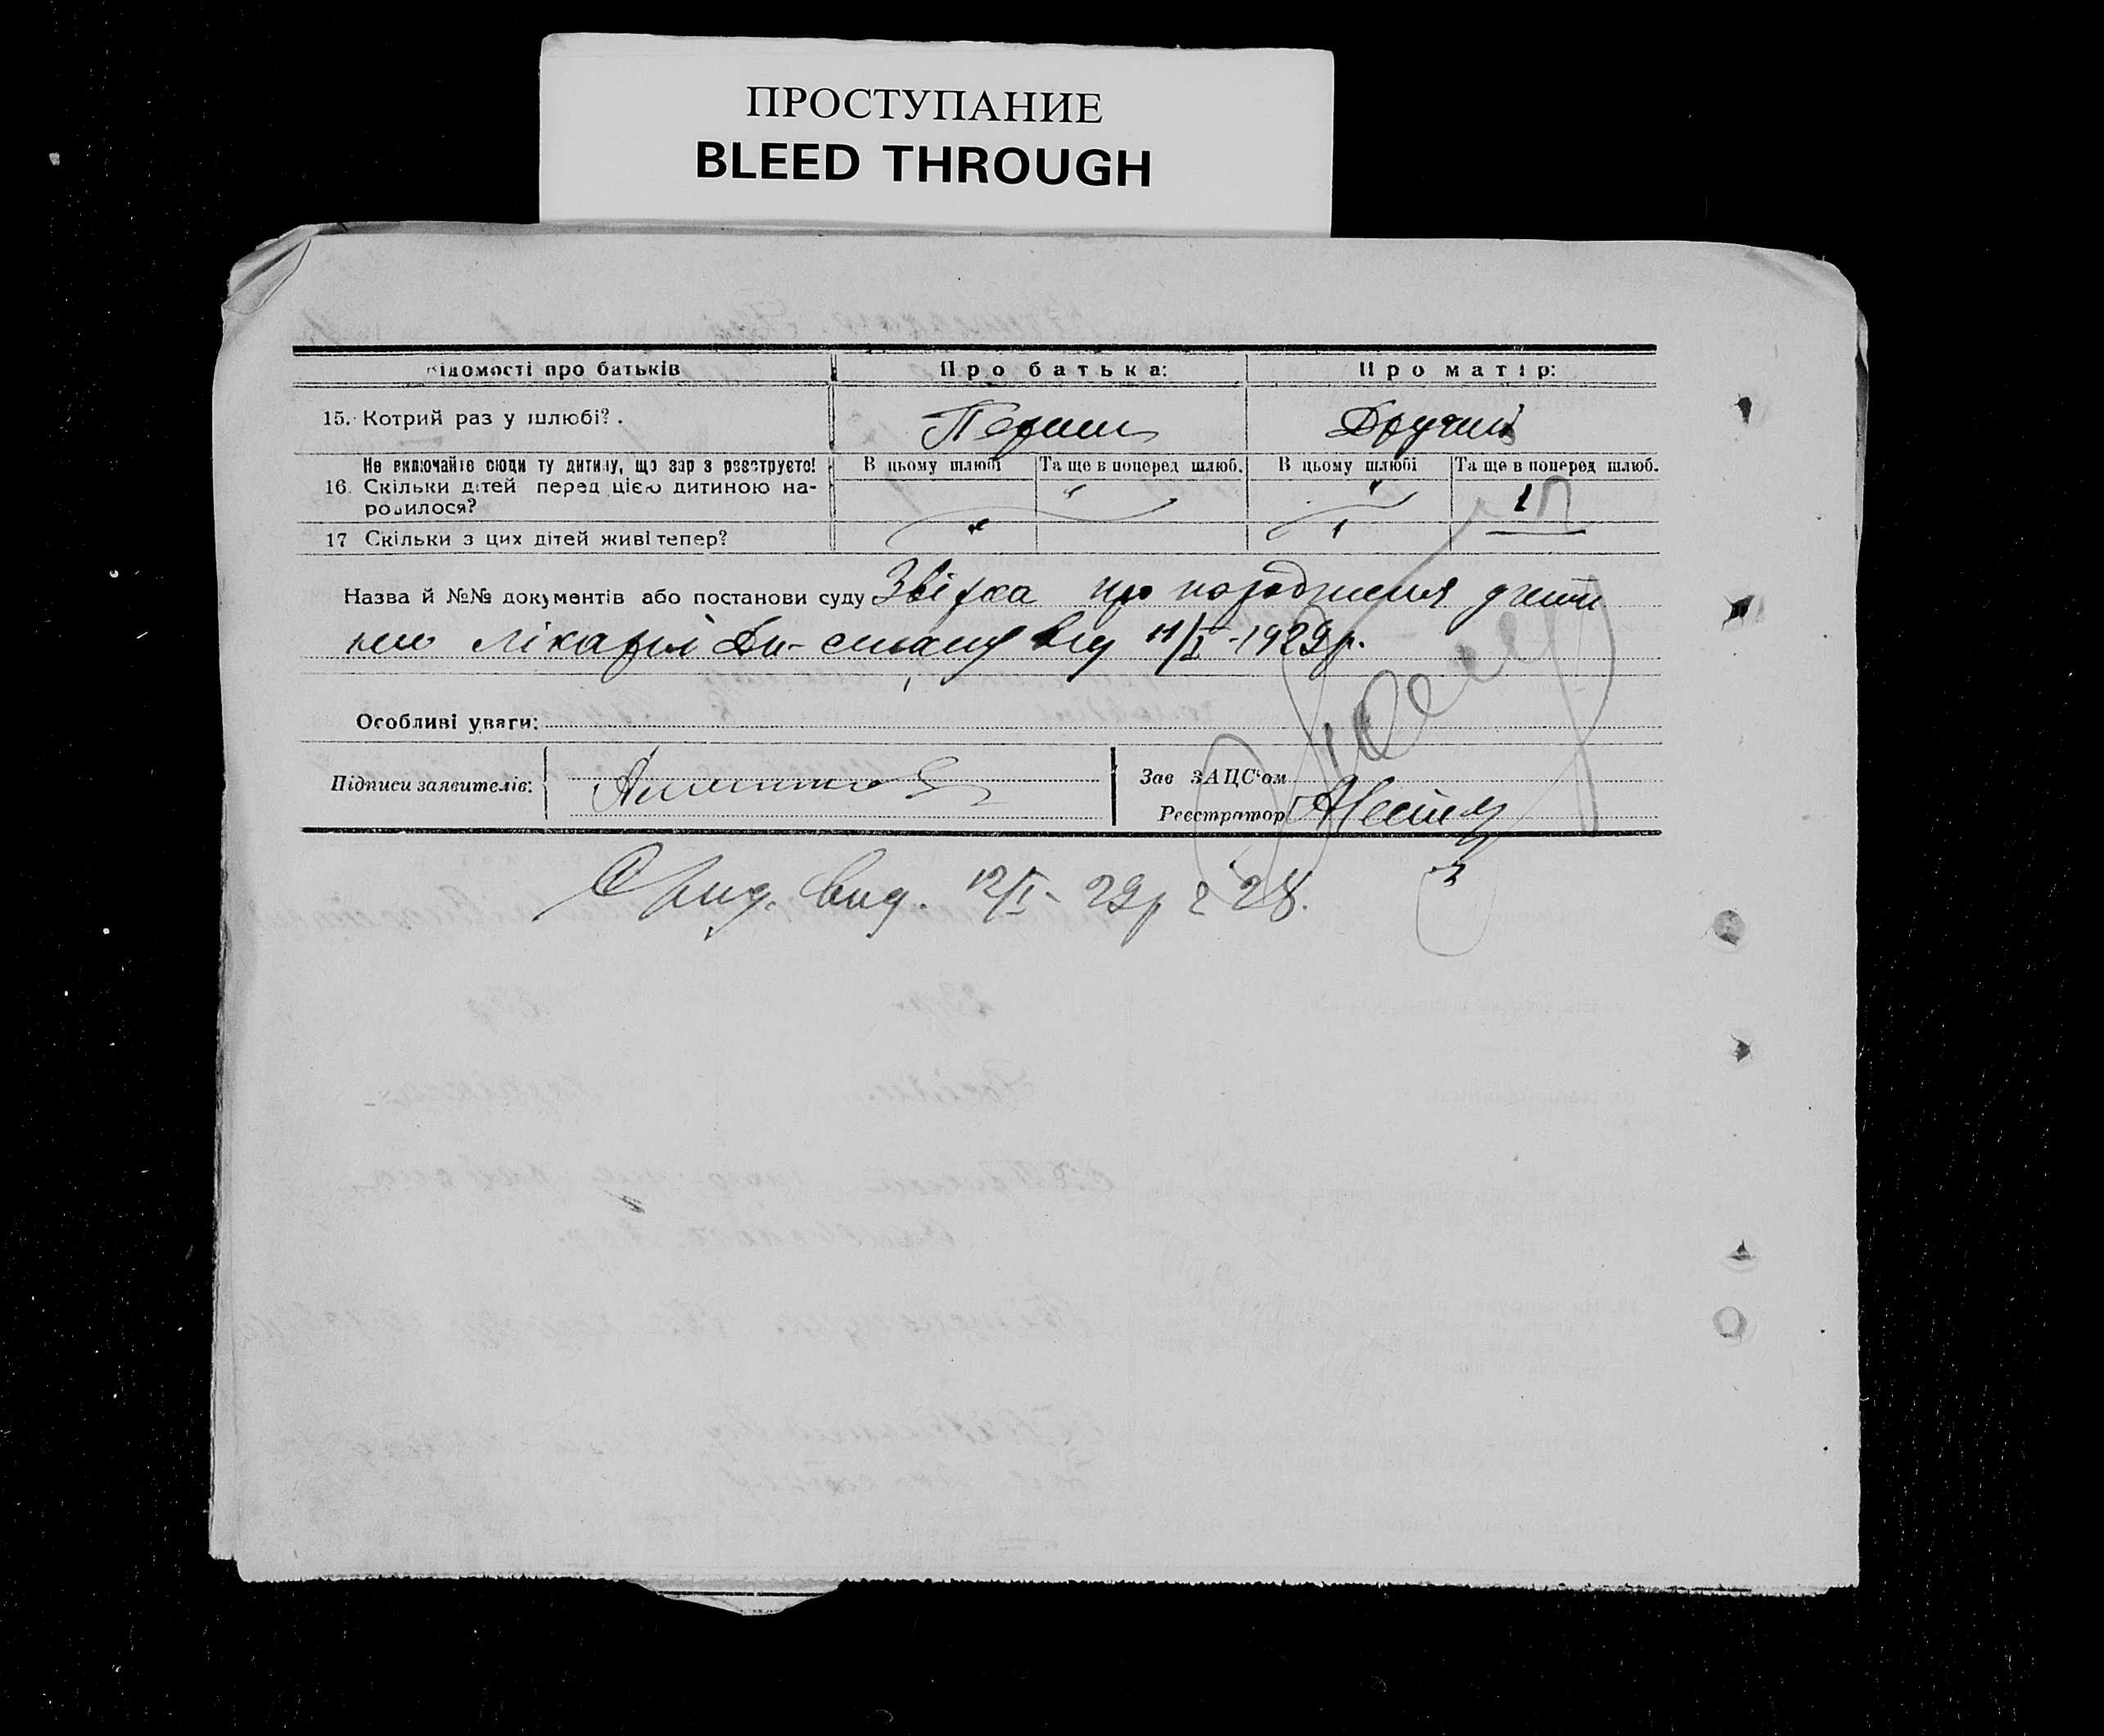 ПРОСТУПАНИЕ
BLEED THROUGH
ідомості про батьків
Про батька:
Про матір:
15. Котрий раз у шлюбі?.
Перший
Другий
Не включайте сюди ту дитину, що зар з реєструєте!
16. Скільки дітей перед цією дитиною на-
родилося?
В цьому шлюбі
Та ще в поперед шлюб.
В цьому шлюбі
Та ще в поперед шлюб.
"
"
1
17 Скільки з цих дітей живі тепер?
"
Назва й №№ документів або постанови суду Звірка про народження
лікарні від 11/I-1929р.
Особливі уваги:
Підписи заявителів:
Зав ЗАЦС'ом
Реєстратор
вид. 12/I-29р 28.